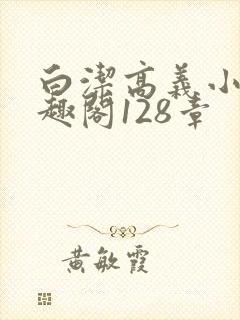 白潔高義小
趣閣128章
黃敏霞